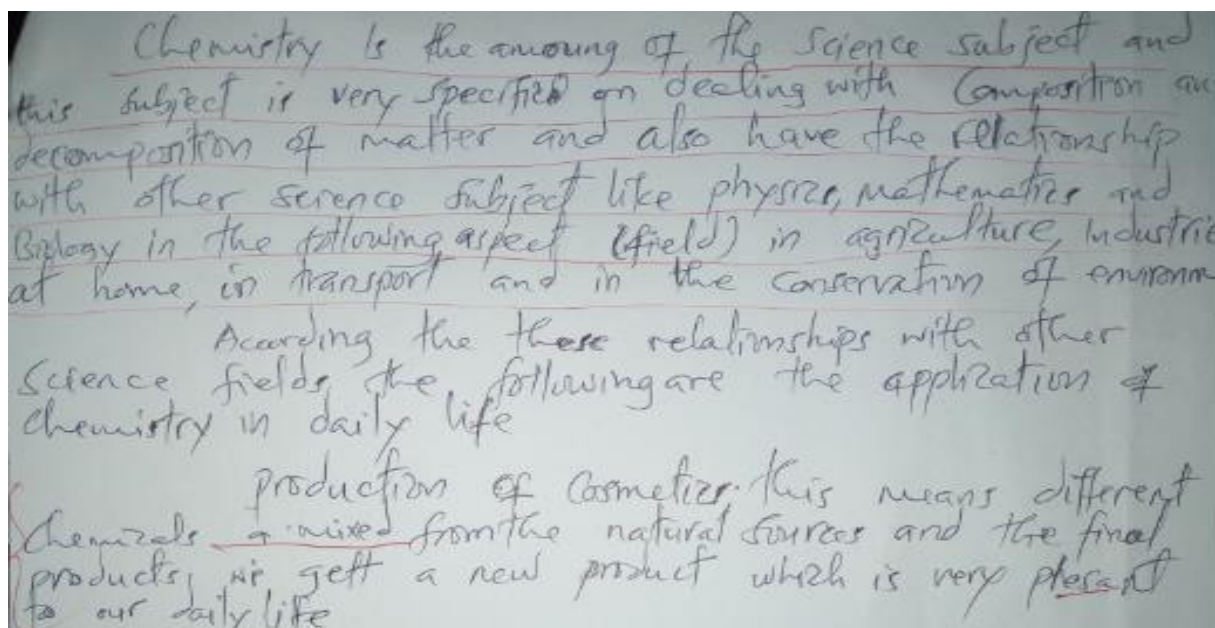 Chemistry is the amoung of the science subject and
this subject is very specified on dealing with composition an
decomposition of matter and also have the relationship
with other science subject like physics, mathematics and
Biology in the following aspect (field) in agriculture, Industrie
at home, in transport and in the conservation of environm
Acording the these relationships with other
Science fields, the following are the application of
chemistry in daily life
production of cosmetics; this means different
chemicals a mixed from the natural sources and the final
products, we gett a new product which is very plesant
to our daily life